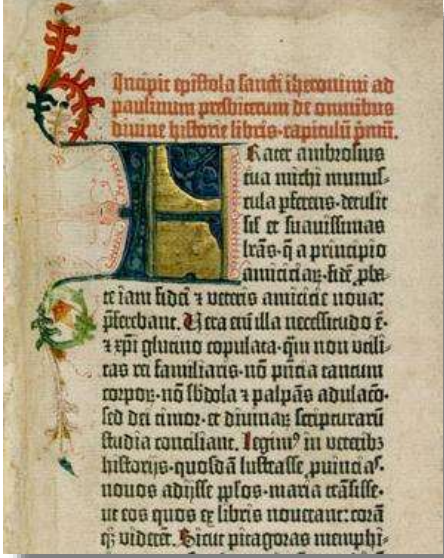 Incipit epistola sancti iheronimi ad
paulinum presbiterum de omnibus
divine historie libris·capitulū pmū.
FRater ambrosius
tua michi munus-
cula ꝑferens·detulit
sil et suavissimas
lrās·q̄ a principio
amiciciaꝝ·fidē ꝓba-
te iam fidei ⁊ veteris amicicie nova:
p̄ferebant. Vera eni̅ illa necessitudo ē·
⁊ xpi glutino copulata·qm̄ non utili-
tas rei familiaris·nō pn̄cia tantum
corporꝝ·nō sb̄dola ⁊ palpās adulacō·
sed dei timor·et divinaꝝ scripturarū
studia conciliant. Legimꝰ in veteribꝫ
historijs·quosdā lustrasse ꝓuīcias·
novos adijsse pp̄los·maria trāsisse·
ut eos quos ex libris noverant: corā
qꝫ viderēt. Sicut pitagoras memphi-